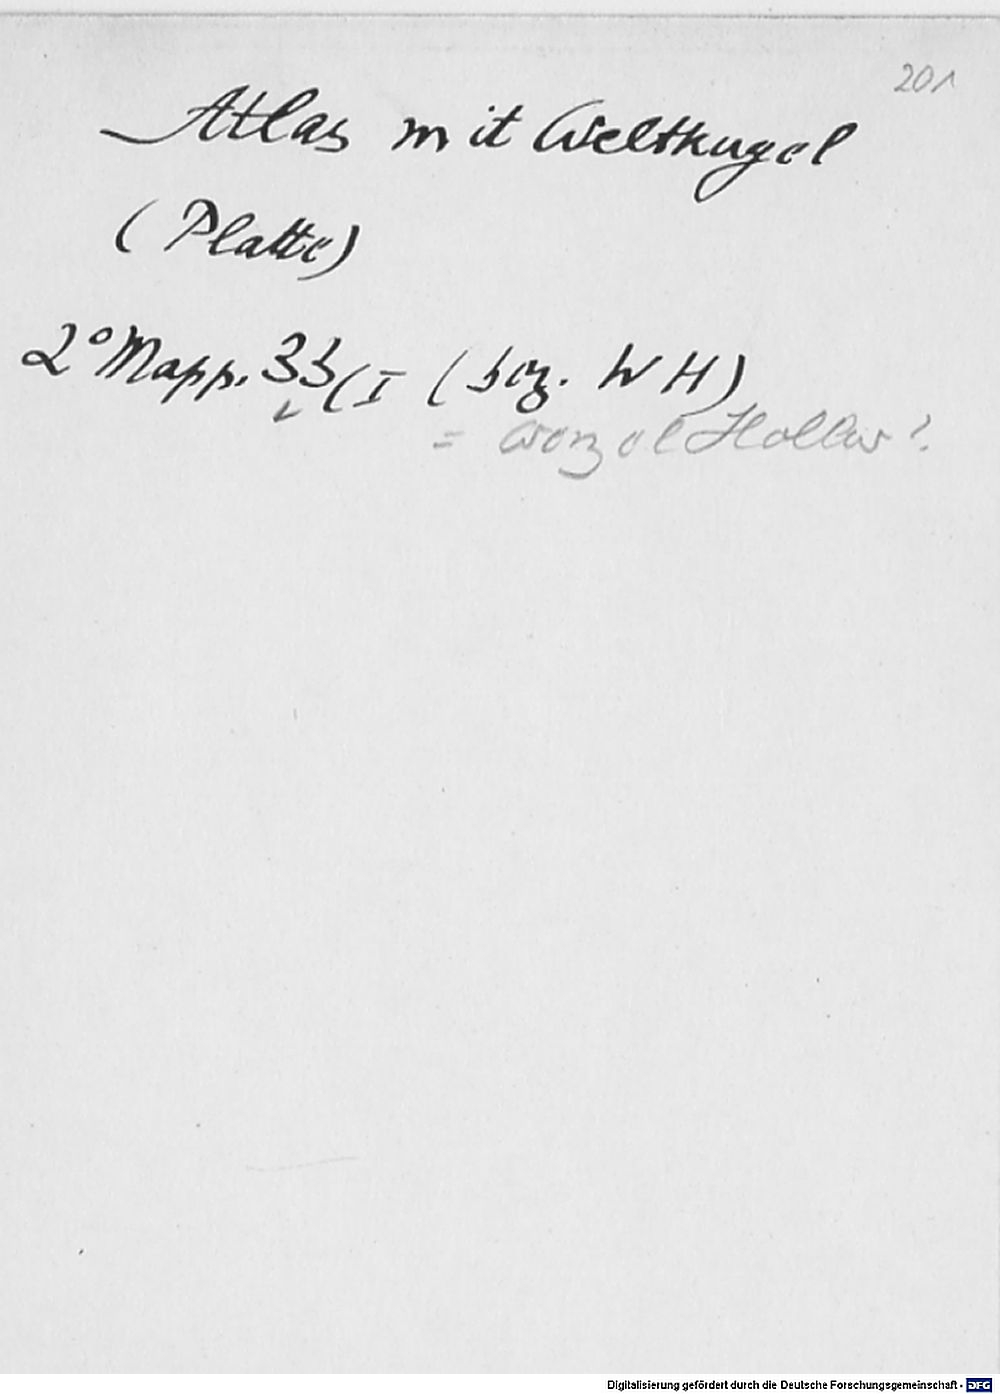 201
Atlas mit Weltkugel
(Platte)
2° Mapp. 33(I (bez. WH)
= Wenzel Hollar?
Digitalisierung gefördert durch die Deutsche Forschungsgemeinschaft - DFG